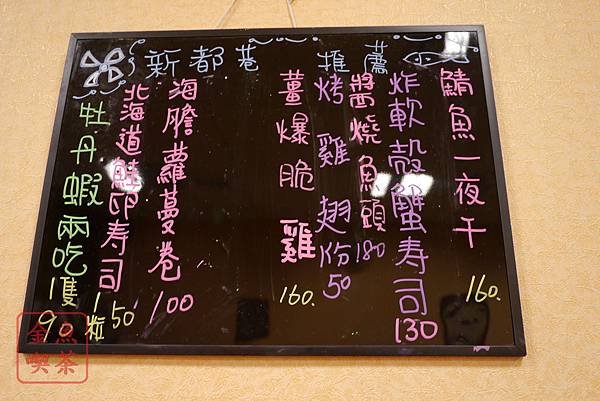 新都巷 推薦
鯖魚一夜干 160.
炸軟殼蟹寿司 130
醬燒魚頭 180
烤雞翅份 50
薑爆脆雞 160.
海膽蘿蔓卷 100
北海道鮭卵寿司 1粒50
牡丹蝦兩吃 1隻90
金魚喫茶